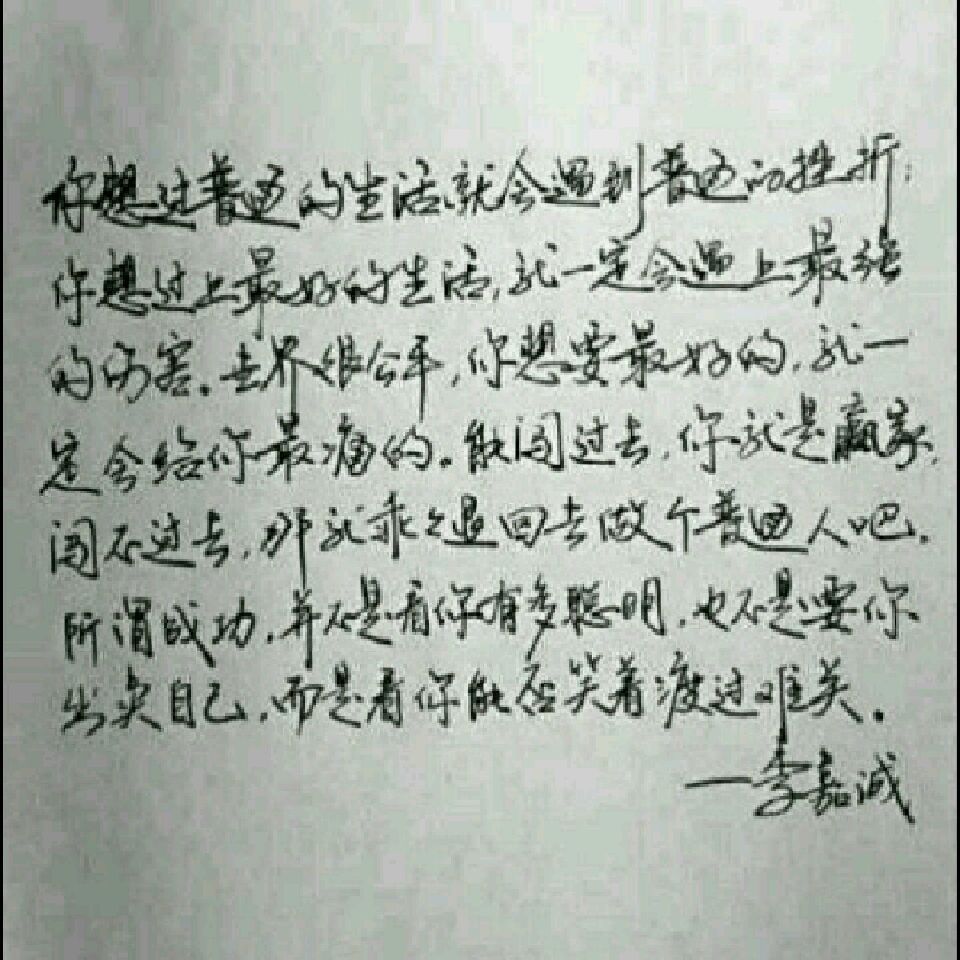 你想过普通的生活就会遇到普通的挫折;
你想过上最好的生活,就一定会遇上最强
的伤害。世界很公平,你想要最好的,就一
定会给你最痛的。能闯过去,你就是赢家,
闯不过去,那就乖乖退回去做个普通人吧。
所谓成功,并不是看你有多聪明,也不是要你
出卖自己,而是看你能否笑着渡过难关。
—李嘉诚